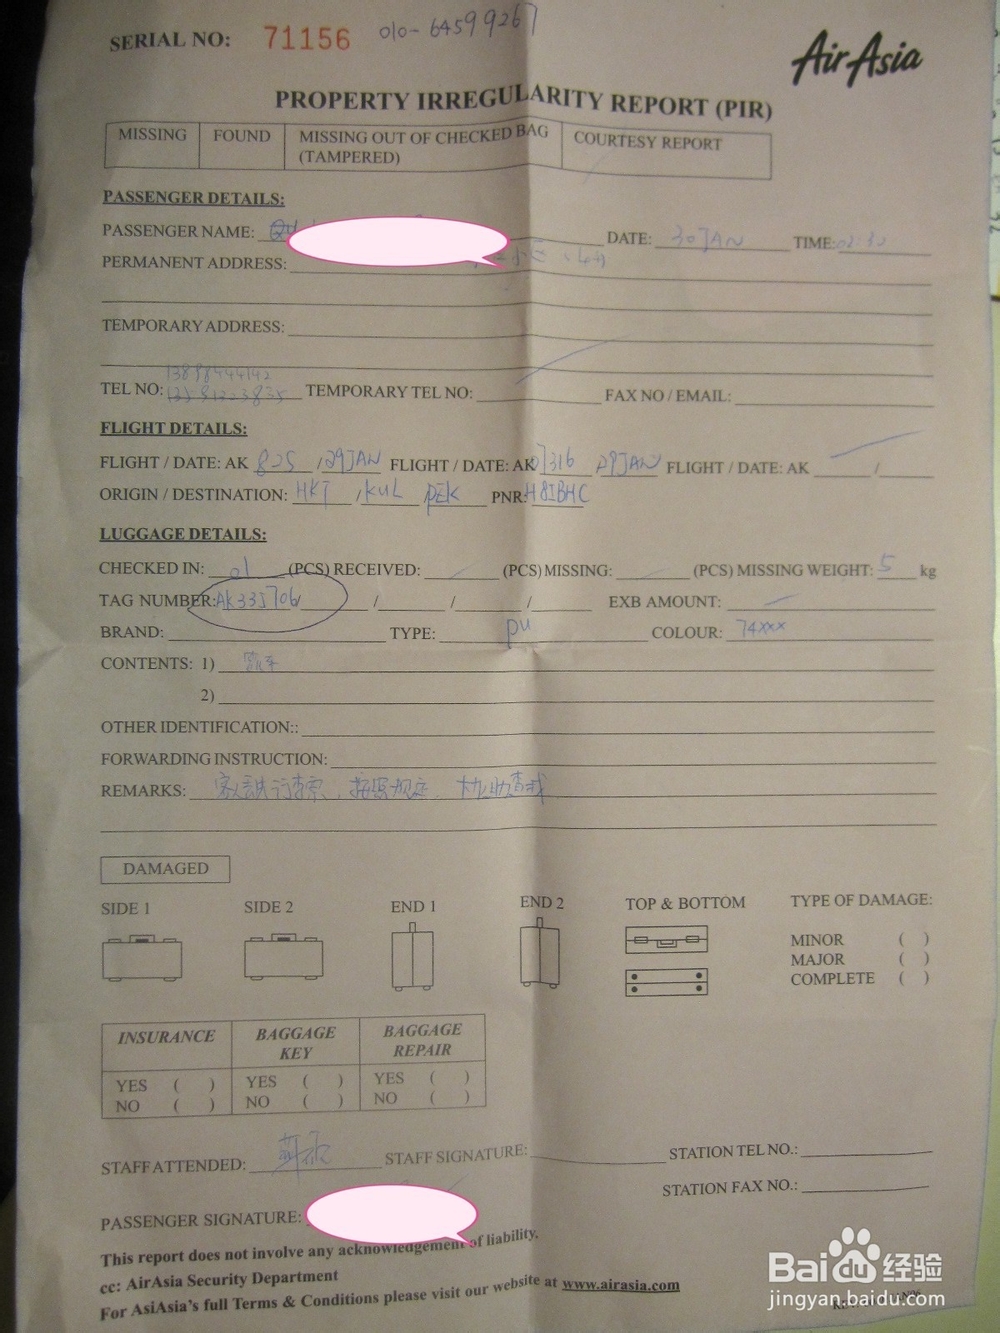 SERIAL NO: 71156 010-64599267
AirAsia
PROPERTY IRREGULARITY REPORT (PIR)
MISSING FOUND MISSING OUT OF CHECKED BAG (TAMPERED) COURTESY REPORT
PASSENGER DETAILS:
PASSENGER NAME: DATE: 30 JAN TIME:
PERMANENT ADDRESS:
TEMPORARY ADDRESS:
TEL NO: TEMPORARY TEL NO: FAX NO / EMAIL:
FLIGHT DETAILS:
FLIGHT / DATE: AK 825 / 29JAN FLIGHT / DATE: AK D7316 29JAN FLIGHT / DATE: AK /
ORIGIN / DESTINATION: HKT / KUL PEK PNR: H8IBHC
LUGGAGE DETAILS:
CHECKED IN: 01 (PCS) RECEIVED: (PCS) MISSING: (PCS) MISSING WEIGHT: 5 kg
TAG NUMBER: AK335706 / / / EXB AMOUNT:
BRAND: TYPE: PU COLOUR: 74xxx
CONTENTS: 1)
2)
OTHER IDENTIFICATION::
FORWARDING INSTRUCTION:
REMARKS: 按照规定 协助查找
DAMAGED
SIDE 1 SIDE 2 END 1 END 2 TOP & BOTTOM TYPE OF DAMAGE:
MINOR ( )
MAJOR ( )
COMPLETE ( )
INSURANCE BAGGAGE KEY BAGGAGE REPAIR
YES ( ) YES ( ) YES ( )
NO ( ) NO ( ) NO ( )
STAFF ATTENDED: STAFF SIGNATURE: STATION TEL NO.:
STATION FAX NO.:
PASSENGER SIGNATURE:
This report does not involve any acknowledgement of liability.
cc: AirAsia Security Department
For AsiAsia's full Terms & Conditions please visit our website at www.airasia.com
Baidu 经验
jingyan.baidu.com